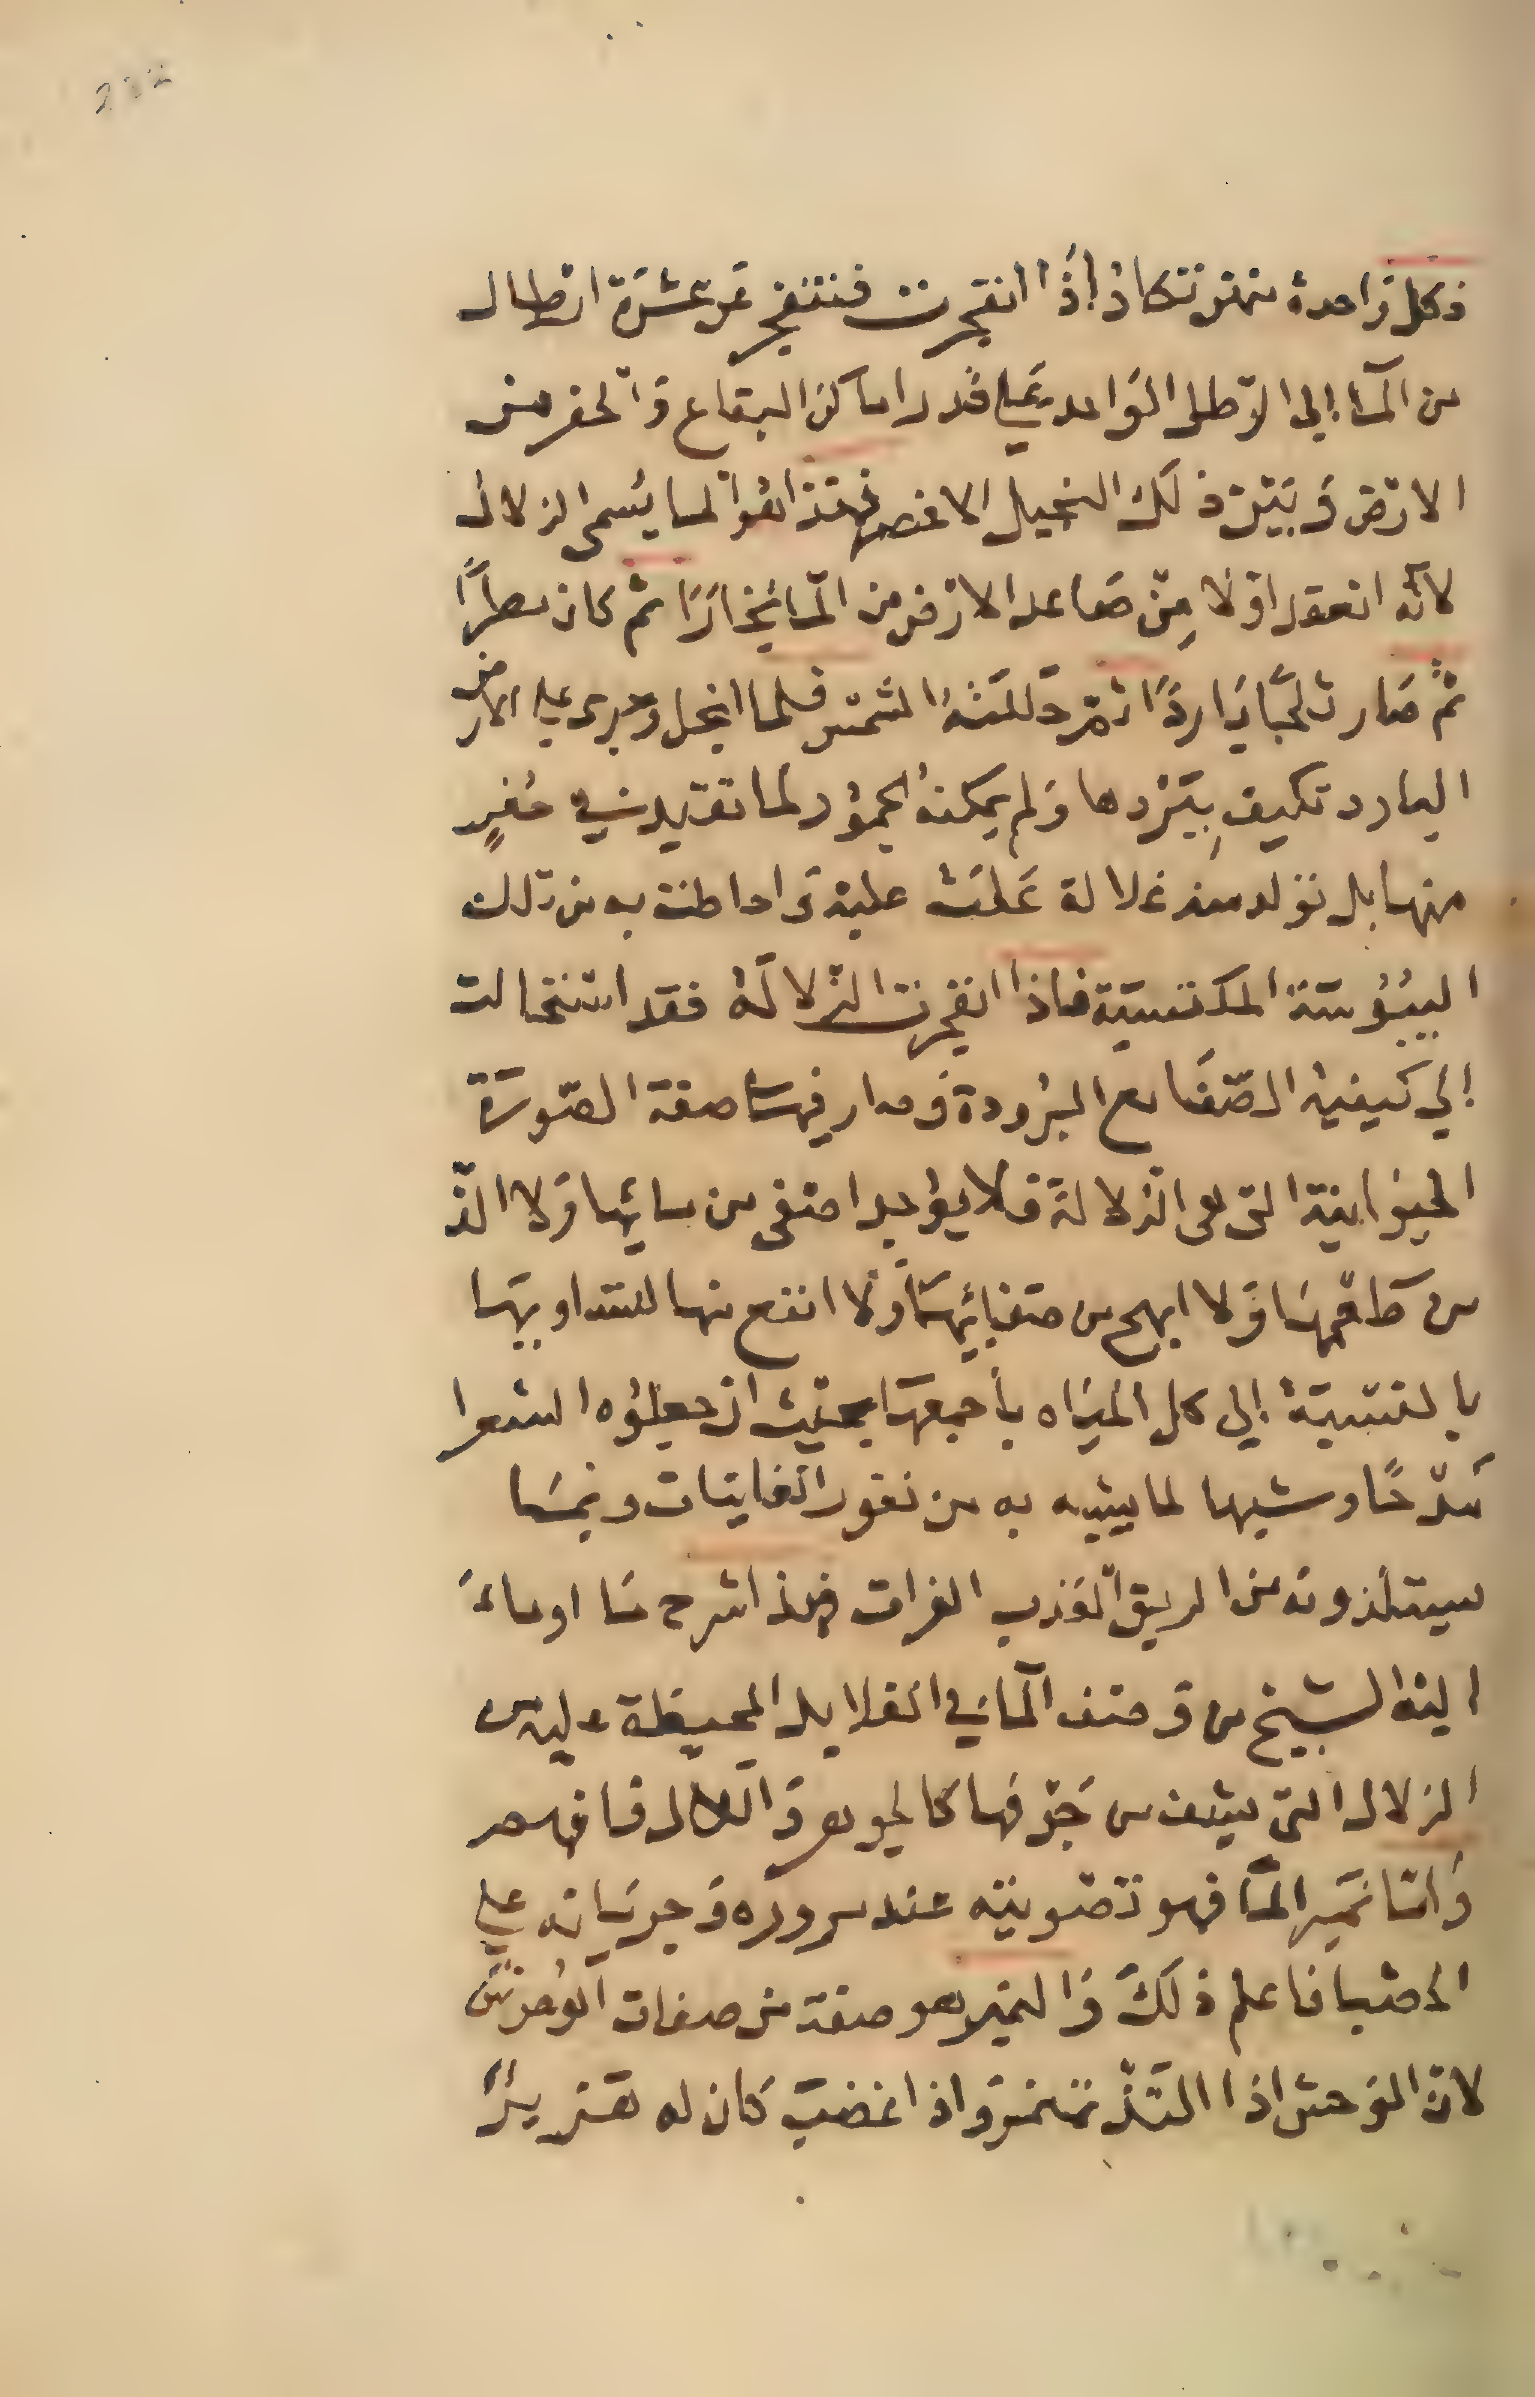 وكل واحدة منهن تكاد إذا انفجرت فتنفجر عن عشرة ارطال
من المآء إلى الرّطل الوَاحد علي قدر اماكن البقاع وَالحفر من
الارض وَبَيْن ذلك النحيل الاغصه فهذا هُوَ لما يُسمى الزلال
لانه انعقد اوّلا مِنْ صَاعد الارض من المآء بُخارًا ثم كان مطرًا
ثم صَار ثلجًا بَاردًا ثم حَللتهُ الشمس فلما انحل وجرى علي الارض
البارد تكيف بِبَرْدها وَلم يمكنهُ الجمُود لما تقيد في حُفرٍ
منها بل تولد منه غلالة عَلَت عليْه وَاحاطت به من تلك
اليبُوسَة المكتسبَة فاذا انفجرت الزلالَة فقد استحالت
إلي كيفية الصّفَا مع البرُودة وَصار فيها صفة الصّورَة
الحيوَانية التى هى الزلالة فلا يوُجد اصفى من مائها وَلا الذ
من طعْمِهَا وَلا ابهج من صَفائِهَا وَلا انفع منها للتداوي بهَا
بالنسبَة إلى كل الميَاه بأجمعهَا بحَيْث ان جعلوُه الشعرا
مَدْحًا وشبها لما يشبه به من ثغور الغانيَات وبمَا
يستلذونه من الريق العَذب الفرات فهذا شرح مَا اوماءَ
اليْه الشيخ من وَصْف المآء في الغلايل المحيطة عليْه من
الزلال التى يشف من جَوْفها كالجوهر وَاللال فافهم
وَامّا نمَير المآء فهو تصْويته عند مروره وَجريَانه علي
الحصْبا فاعلم ذلكَ وَالنمير هو صفة من صفات الوُحوش
لانّ الوَحش اذا التَذّ تنمنمَ وَاذا غضبَ كان له هَدِيرٌ